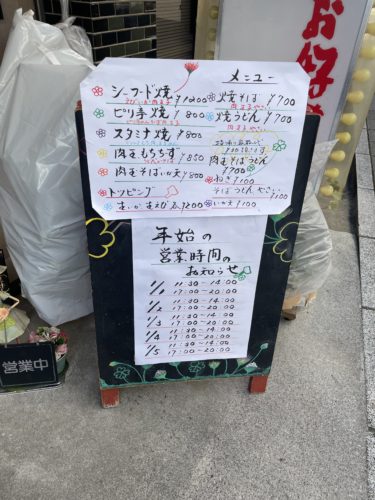 お好
メニュー
シーフード焼 ¥1200
ピリ辛焼 ¥800
スタミナ焼 ¥800
肉玉もちチーズ ¥850
肉玉そばいか天 ¥800
トッピング
¥200
焼そば ¥700
肉玉子やさい
焼うどん ¥700
肉玉やさい
肉玉そばうどん
¥700
ねぎ ¥100
そば うどん やさい
¥100
いか天 ¥100
年始の
営業時間の
お知らせ
1/1 11:30〜14:00
17:00〜20:00
1/2 11:30〜14:00
17:00〜20:00
1/3 11:30〜14:00
17:00〜20:00
1/4 11:30〜14:00
17:00〜20:00
1/5 11:30〜14:00
17:00〜20:00
営業中